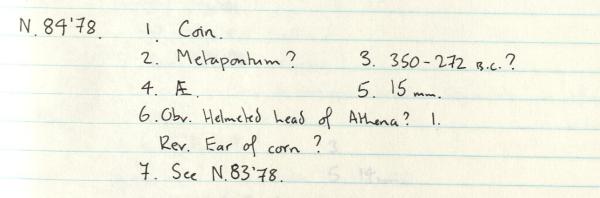 N. 84'78. 1. Coin.
2. Metapontum? 3. 350-272 B.C.?
4. Æ. 5. 15 mm.
6. Obv. Helmeted head of Athena? l.
Rev. Ear of corn?
7. See N.83'78.